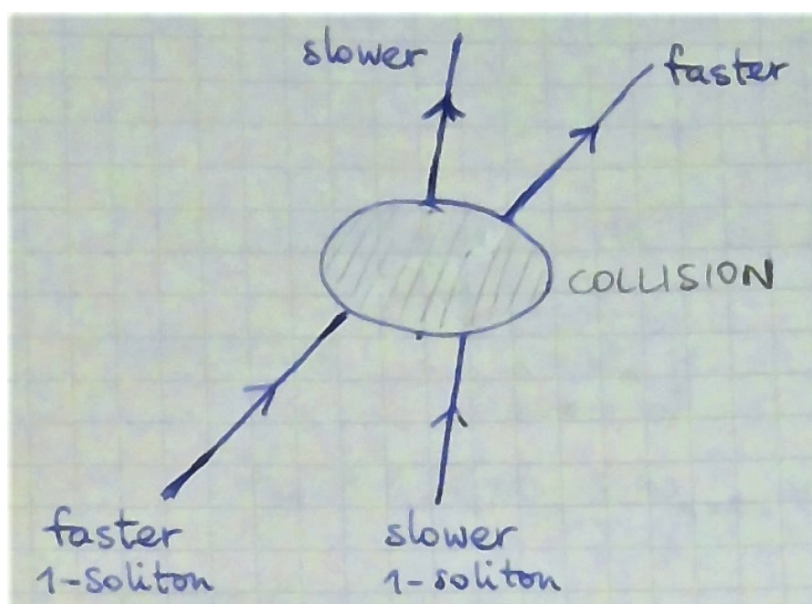 slower
faster
COLLISION
faster
1-soliton
slower
1-soliton